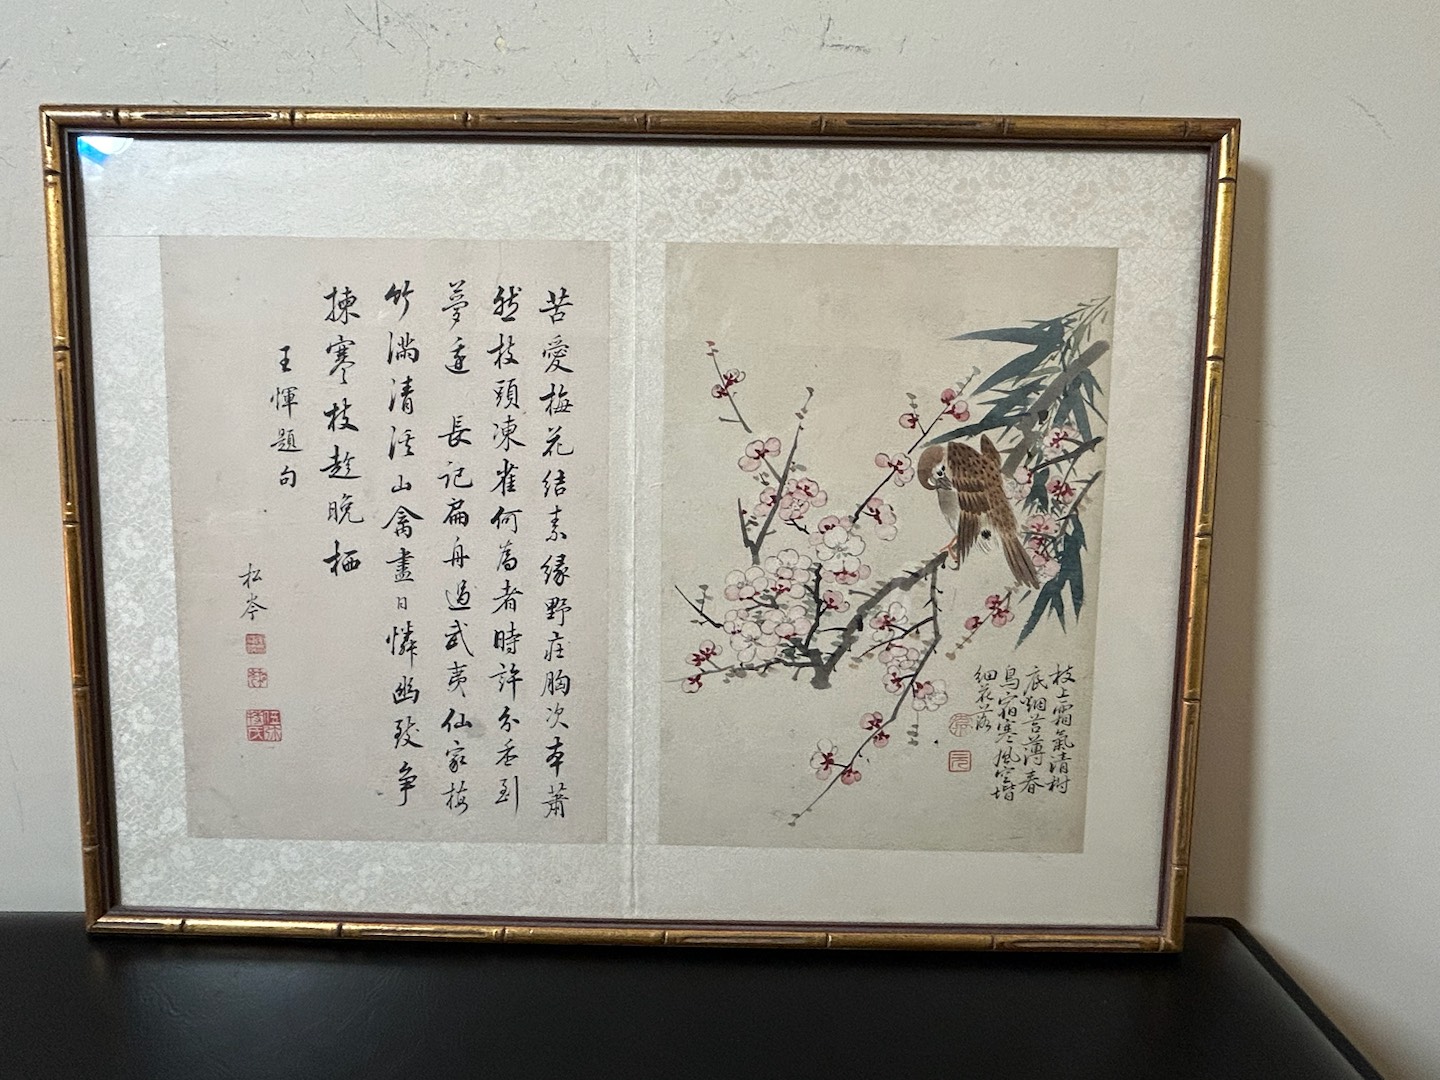 枝上霜氣清樹
底烟苔薄春
鳥宿寒風空堦
細花落
苦愛梅花結素緣野庄胸次本蕭
然枝頭凍雀何為者時許分香到
夢邊 長記扁舟過武夷仙家梅
竹滿清溪山禽盡日憐幽致爭
揀寒枝趁晚栖
王惲題句
松岑